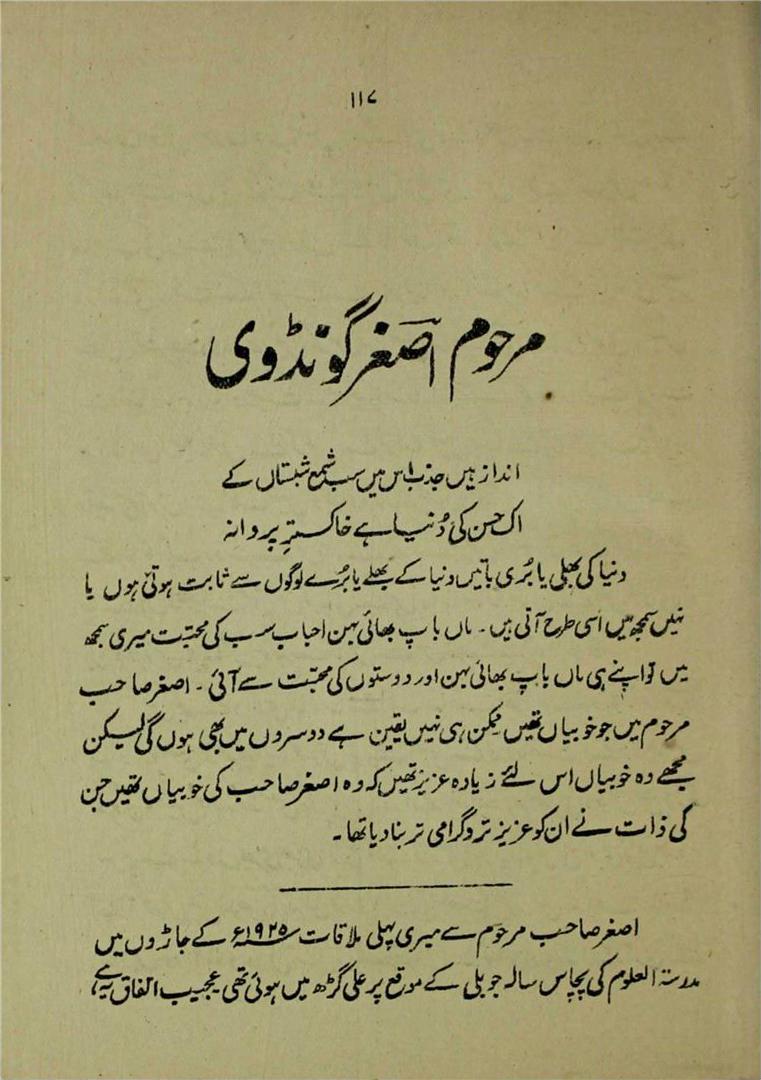 ۱۱۷
مرحوم اصغر گونڈوی
انداز ہیں جذب اس میں سب شمع شبستاں کے
اک حسن کی دُنیا ہے خاکسترِ پروانہ
دنیا کی بھلی یا بُری باتیں دنیا کے بھلے یا بُرے لوگوں سے ثابت ہوتی ہوں یا
نہیں سمجھ میں اسی طرح آتی ہیں۔ ماں باپ بھائی بہن احباب سب کی محبّت میری سمجھ
میں تو اپنے ہی ماں باپ بھائی بہن اور دوستوں کی محبّت سے آئی۔ اصغر صاحب
مرحوم میں جو خوبیاں تھیں ممکن ہی نہیں یقین ہے دوسروں میں بھی ہوں گی لیکن
مجھے وہ خوبیاں اس لئے زیادہ عزیز تھیں کہ وہ اصغر صاحب کی خوبیاں تھیں جن
کی ذات نے ان کو عزیز تر و گرامی تر بنا دیا تھا۔
اصغر صاحب مرحوم سے میری پہلی ملاقات ۱۹۲۵ء کے جاڑوں میں
مدرستہ العلوم کی پچاس سالہ جوبلی کے موقع پر علی گڑھ میں ہوئی تھی عجیب اتفاق ہے،